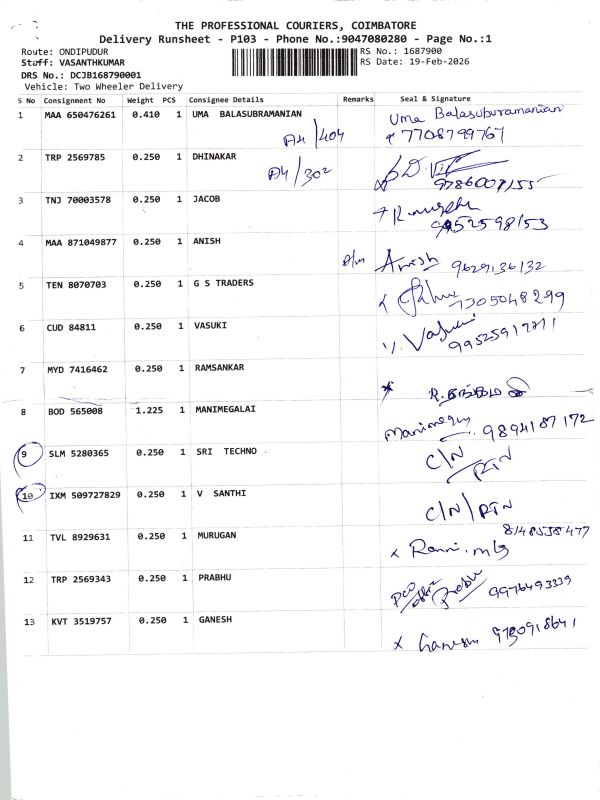 THE PROFESSIONAL COURIERS, COIMBATORE
Delivery Runsheet - P103 - Phone No.:9047080280 - Page No.:1
Route: ONDIPUDUR RS No.: 1687900
Staff: VASANTHKUMAR RS Date: 19-Feb-2026
DRS No.: DCJB168790001
Vehicle: Two Wheeler Delivery
S No Consignment No Weight PCS Consignee Details Remarks Seal & Signature
1 MAA 650476261 0.410 1 UMA BALASUBRAMANIAN Uma Balasubramanian
A4/404 7708799767
2 TRP 2569785 0.250 1 DHINAKAR
A4/302
3 TNJ 70003578 0.250 1 JACOB
4 MAA 871049877 0.250 1 ANISH Anish 9629136132
5 TEN 8070703 0.250 1 G S TRADERS
7305048299
6 CUD 84811 0.250 1 VASUKI Vasuki
7 MYD 7416462 0.250 1 RAMSANKAR
8 BOD 565008 1.225 1 MANIMEGALAI
9894187172
9 SLM 5280365 0.250 1 SRI TECHNO C/N
RTN
10 IXM 509727829 0.250 1 V SANTHI
C/N/RTN
11 TVL 8929631 0.250 1 MURUGAN 8148538477
12 TRP 2569343 0.250 1 PRABHU
Prabhu 9976493339
13 KVT 3519757 0.250 1 GANESH
Ganesh